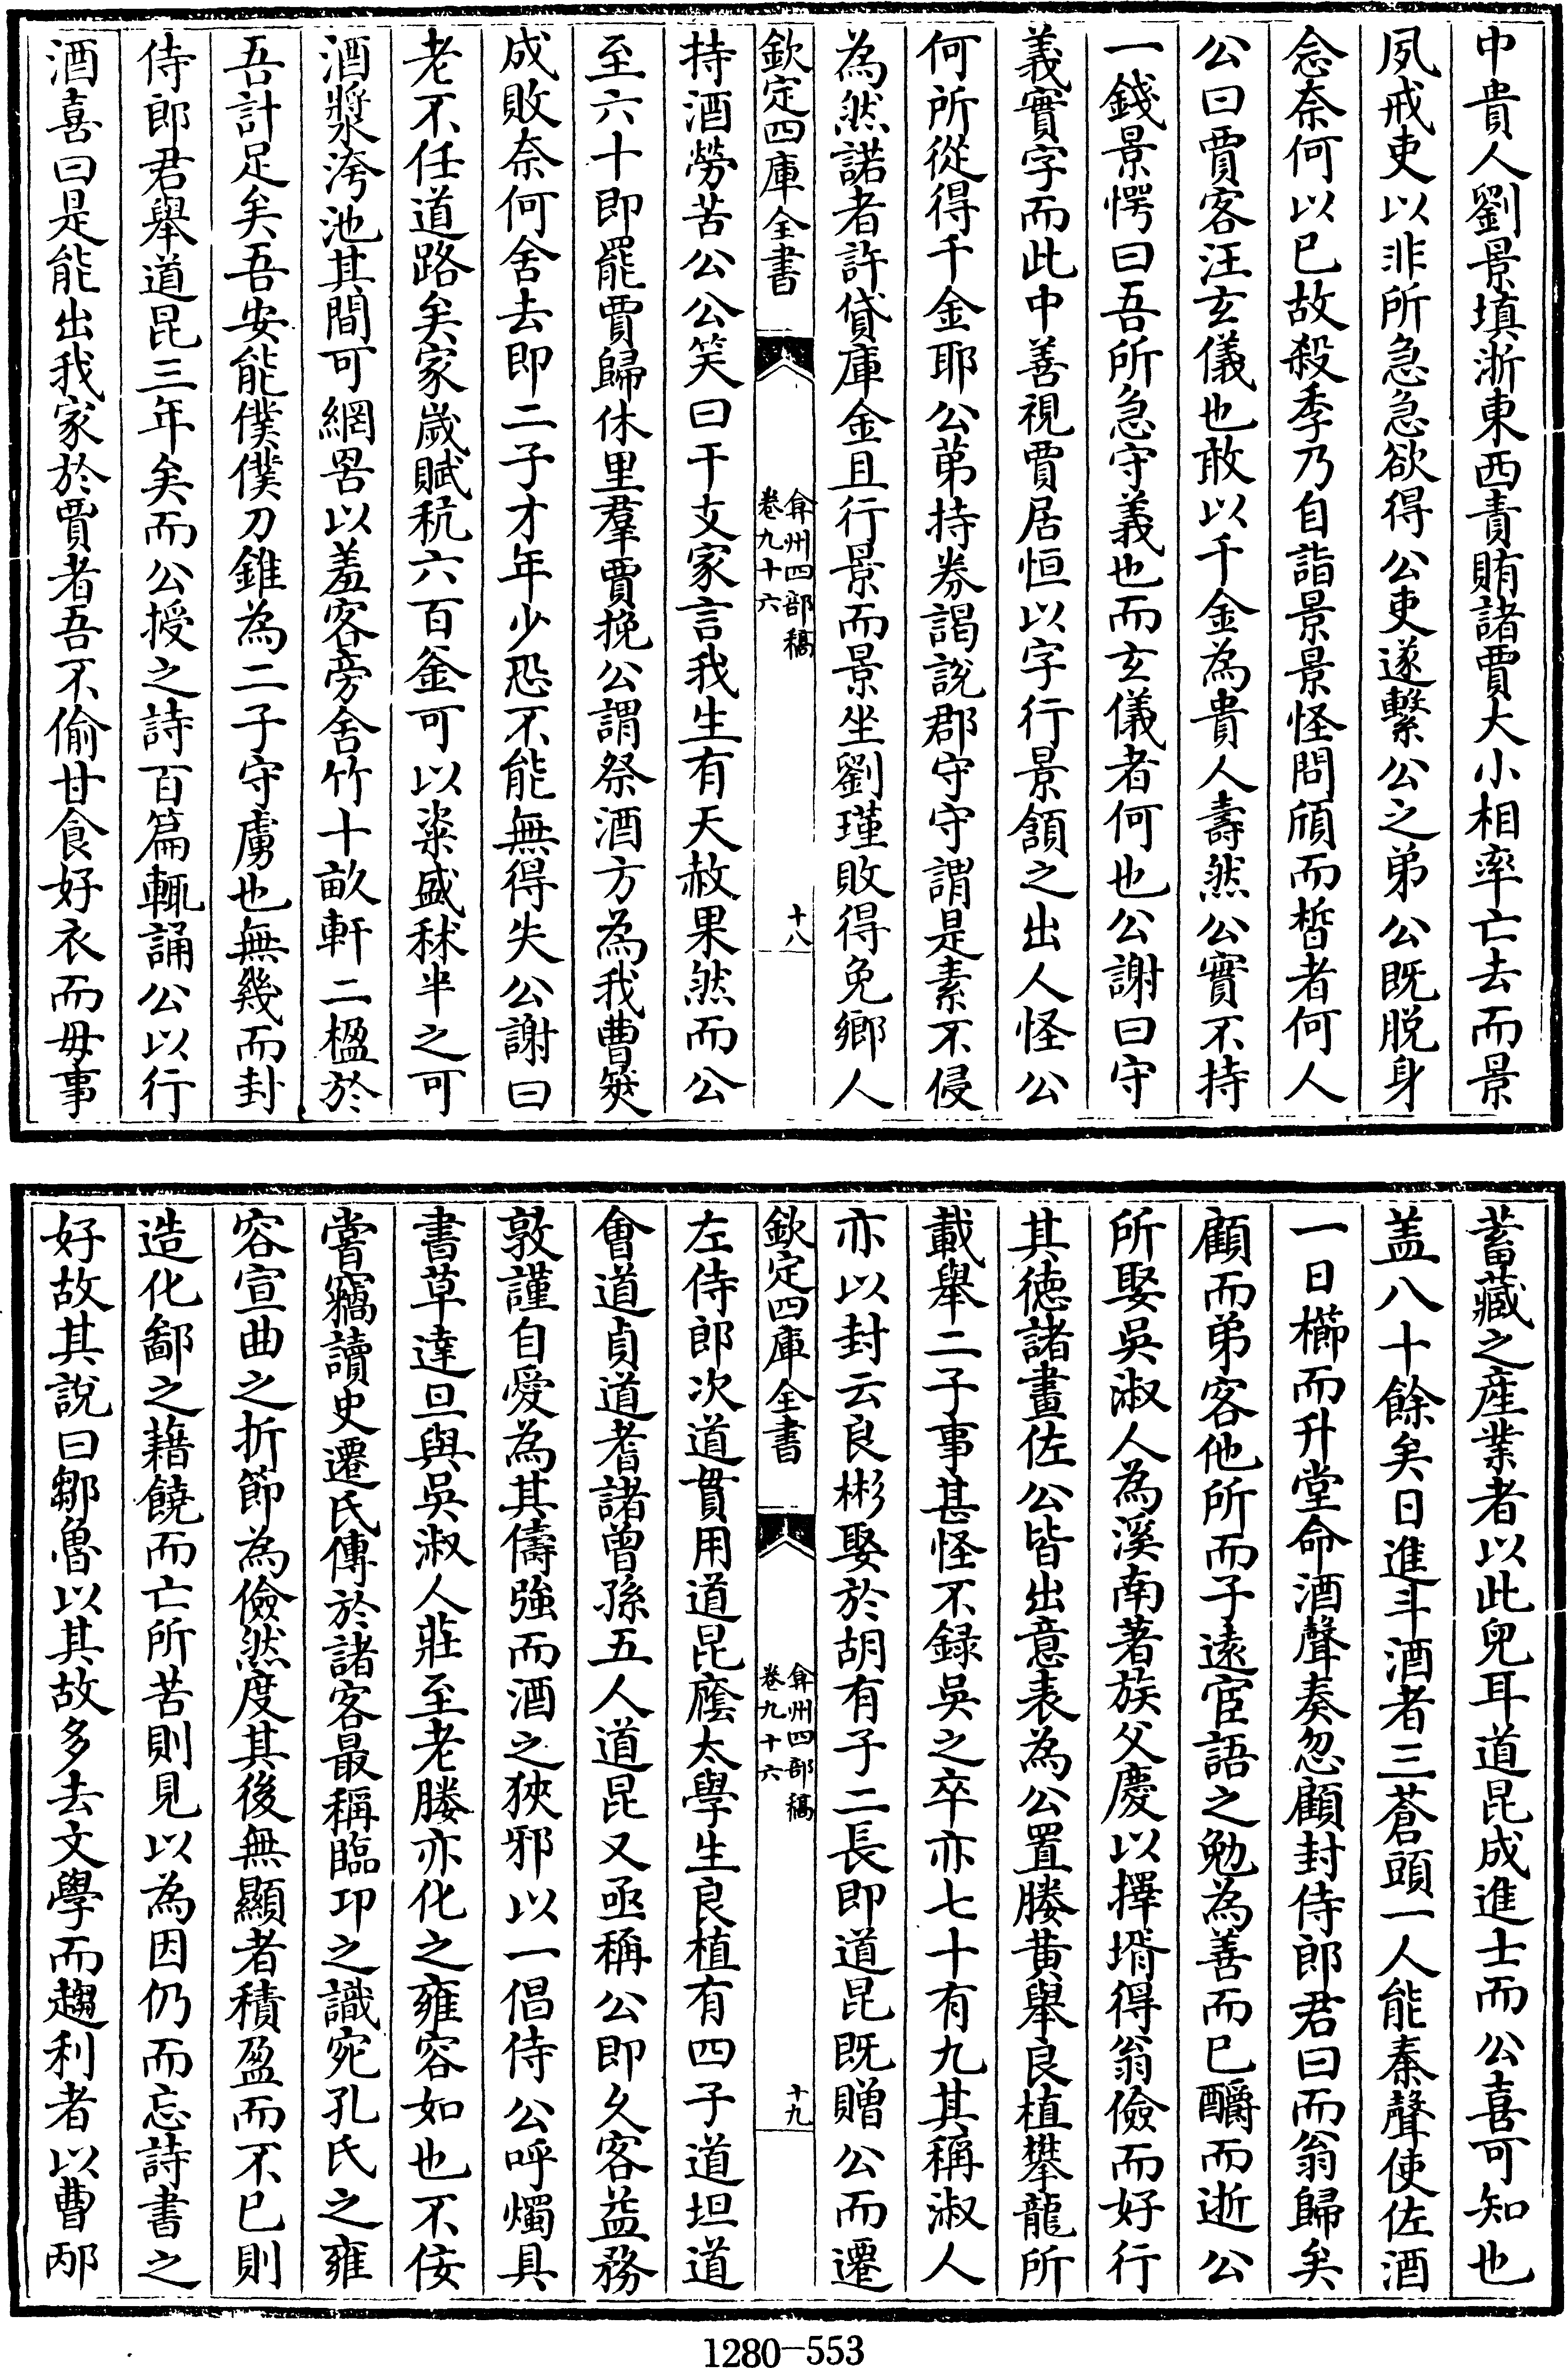 中貴人劉景填浙東西責賄諸賈大小相率亡去而景
夙戒吏以非所急急欲得公吏遂繫公之弟公既脫身
念奈何以已故殺季乃自詣景景怪問頎而晳者何人
公曰賈客汪玄儀也敢以千金為貴人壽然公實不持
一錢景愕曰吾所急守義也而玄儀者何也公謝曰守
義實字而此中善視賈居恒以字行景頷之出人怪公
何所從得千金耶公苐持券謁說郡守守謂是素不侵
為然諾者許貸庫金且行景而景坐劉瑾敗得免鄉人
欽定四庫全書
弇州四部稿
卷九十六
十八
持酒勞苦公公笑曰干支家言我生有天赦果然而公
至六十即罷賈歸休里羣賈挽公謂祭酒方為我曹筴
成敗奈何舍去即二子才年少恐不能無得失公謝曰
老不任道路矣家嵗賦秔六百釜可以粢盛秫半之可
酒漿洿池其間可網罟以羞客旁舍竹十畝軒二楹於
吾計足矣吾安能僕僕刀錐為二子守虜也無幾而封
侍郎君舉道昆三年矣而公授之詩百篇輒誦公以行
酒喜曰是能出我家於賈者吾不偷甘食好衣而毋事
蓄藏之産業者以此兒耳道昆成進士而公喜可知也
盖八十餘矣日進斗酒者三蒼頭一人能秦聲使佐酒
一日櫛而升堂命酒聲奏忽顧封侍郎君曰而翁歸矣
顧而弟客他所而子遠宦語之勉為善而已釂而逝公
所娶吳淑人為溪南著族父慶以擇壻得翁儉而好行
其徳諸畫佐公皆出意表為公置媵黃舉良植攀龍所
載舉二子事甚怪不録吳之卒亦七十有九其稱淑人
亦以封云良彬娶於胡有子二長即道昆既贈公而遷
欽定四庫全書
弇州四部稿
卷九十六
十九
左侍郎次道貫用道昆廕太學生良植有四子道坦道
會道貞道耆諸曾孫五人道昆又亟稱公即久客益務
敦謹自愛為其儔強而酒之狹邪以一倡侍公呼燭具
書草達旦與吳淑人莊至老媵亦化之雍容如也不佞
嘗竊讀史遷氏傳於諸客最稱臨卭之識宛孔氏之雍
容宣曲之折節為儉然度其後無顯者積盈而不已則
造化鄙之藉饒而亡所苦則見以為因仍而忘詩書之
好故其說曰鄒魯以其故多去文學而趨利者以曹邴
1280-553